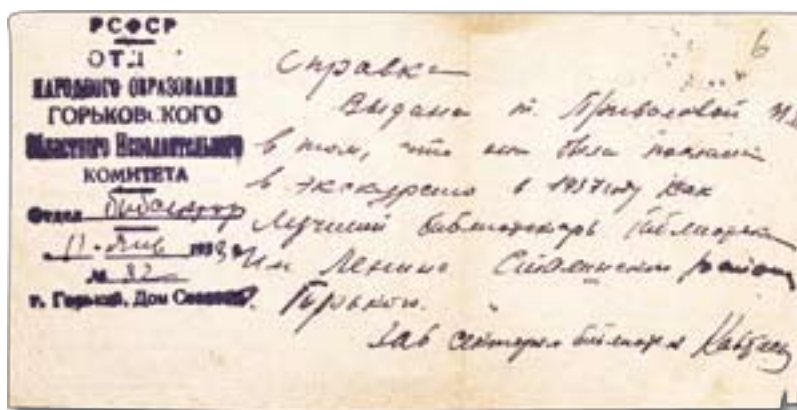 РСФСР
ОТД
НАРОДНОГО ОБРАЗОВАНИЯ
ГОРЬКОВСКОГО
Областного Исполнительного
КОМИТЕТА
Отдел библсектор
11 - янв 193
№ 32
г. Горький, Дом Советов
6
Справка
Выдана т. Приваловой
в том, что она была послана
в экскурсию в 1937 году как
лучший библиотекарь библиотеки
им Ленина Сталинского района
Горького.
Зав сектором библиотек